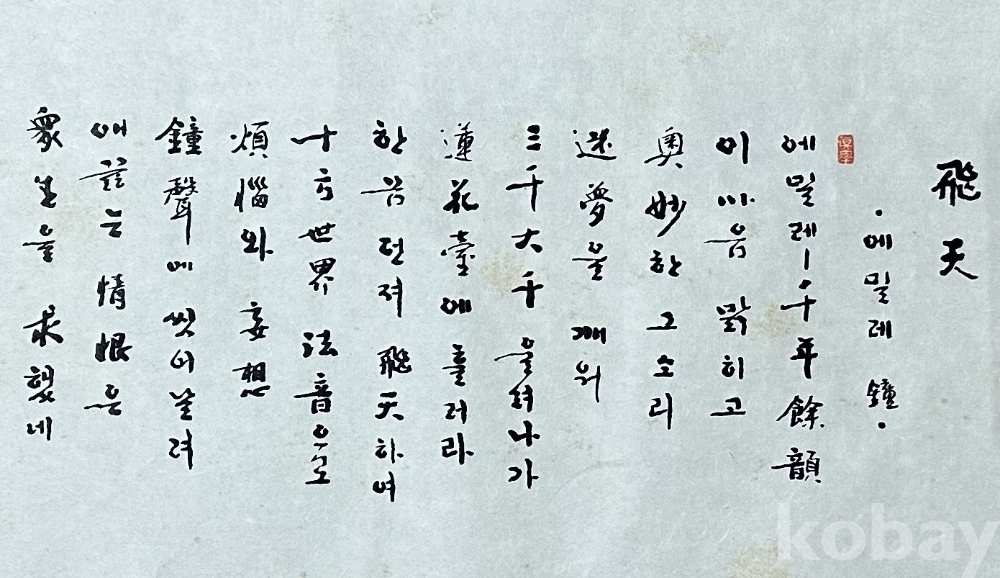 飛天
·에밀레 鐘·
에밀레- 千年 餘韻
이 마음 맑히고
奧妙한 그 소리
迷夢을 깨워
三千大千 울려나가
蓮花臺에 흘러라
한 몸 던져 飛天하여
十方世界 法音으로
煩惱와 妄想
鐘聲에 씻어 날려
애끓는 情恨은
衆生을 求했네
kobay